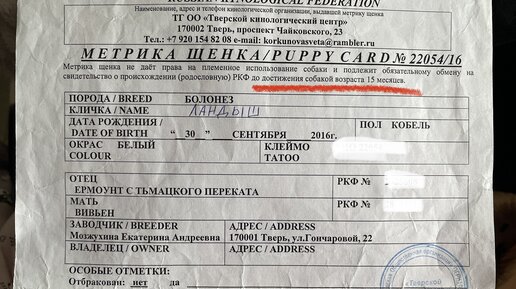 RUSSIAN KYNOLOGICAL FEDERATION
Наименование, адрес и телефон кинологической организации, выдавшей метрику щенка
ТГ ОО «Тверской кинологический центр»
170002 Тверь, проспект Чайковского, 23
Тел: +7 920 154 82 08 e-mail: korkunovasveta@rambler.ru
МЕТРИКА ЩЕНКА/PUPPY CARD № 22054/16
Метрика щенка не даёт права на племенное использование собаки и подлежит обязательному обмену на
свидетельство о происхождении (родословную) РКФ до достижения собакой возраста 15 месяцев.
ПОРОДА/BREED БОЛОНЕЗ
КЛИЧКА / NAME ЛАНДЫШ
ДАТА РОЖДЕНИЯ / ПОЛ КОБЕЛЬ
DATE OF BIRTH “ 30 ” СЕНТЯБРЯ 2016г.
ОКРАС БЕЛЫЙ КЛЕЙМО
COLOUR TATOO
ОТЕЦ
ЕРМОУНТ С ТЬМАЦКОГО ПЕРЕКАТА РКФ №
МАТЬ
ВИВЬЕН РКФ №
ЗАВОДЧИК / BREEDER АДРЕС / ADDRESS
Мозжухина Екатерина Андреевна 170001 Тверь, ул.Гончаровой, 22
ВЛАДЕЛЕЦ / OWNER АДРЕС / ADDRESS
ОСОБЫЕ ОТМЕТКИ:
Отбракован: нет да
«Тверской